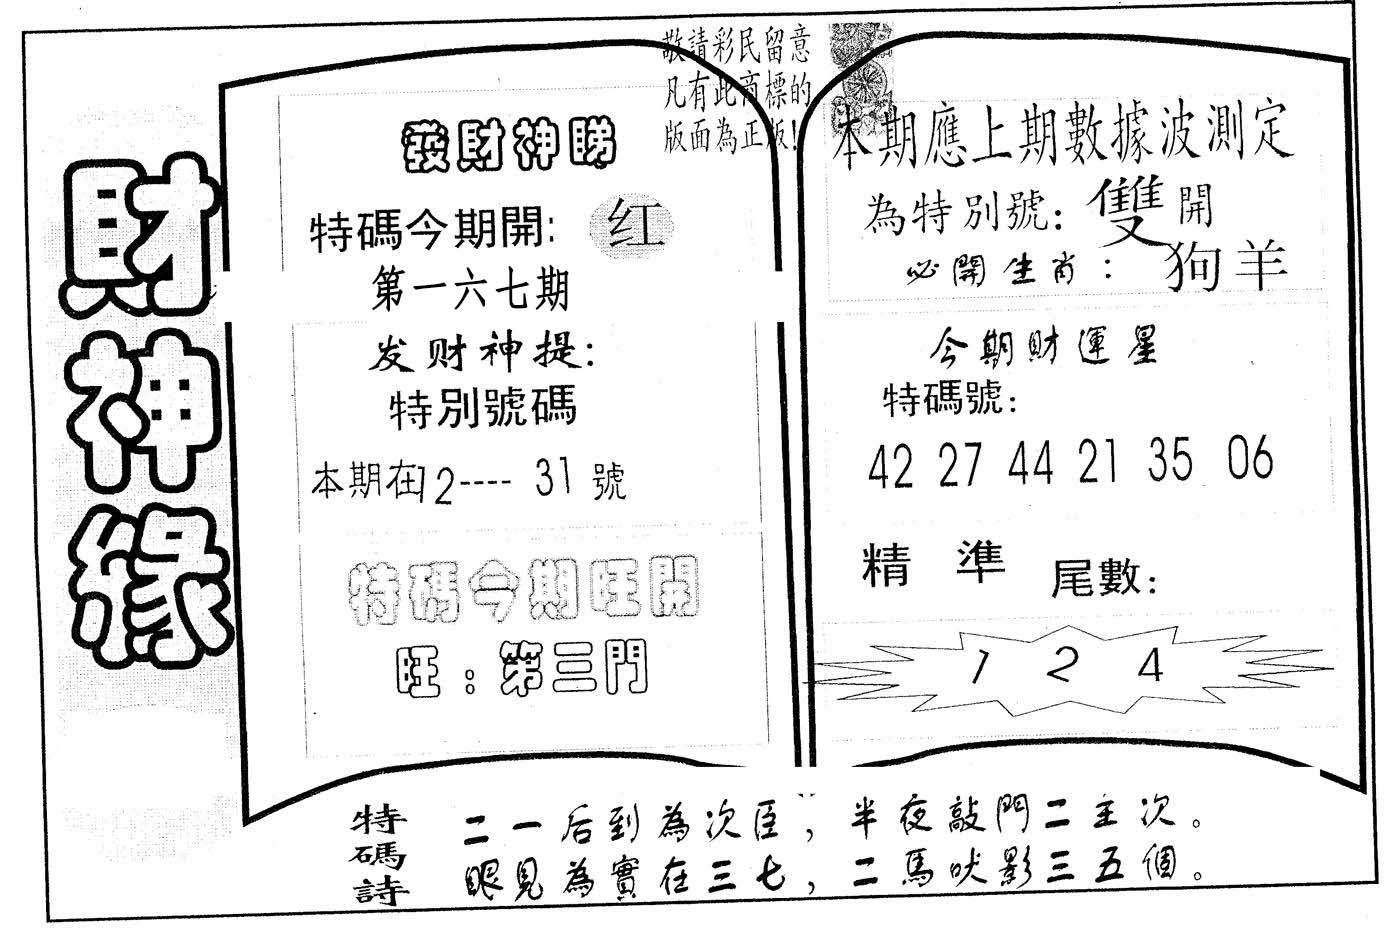 財神緣
敬請彩民留意
凡有此商標的
版面為正版!
發財神睇
特碼今期開: 红
第一六七期
发财神提:
特別號碼
本期在12---- 31 號
特碼今期旺開
旺：第三門
本期應上期數據波測定
為特別號: 雙開
必開生肖： 狗羊
今期財運星
特碼號:
42 27 44 21 35 06
精 準 尾數:
1 2 4
特碼詩
二一后到為次臣，半夜敲門二主次。
眼見為實在三七，二馬吠影三五個。